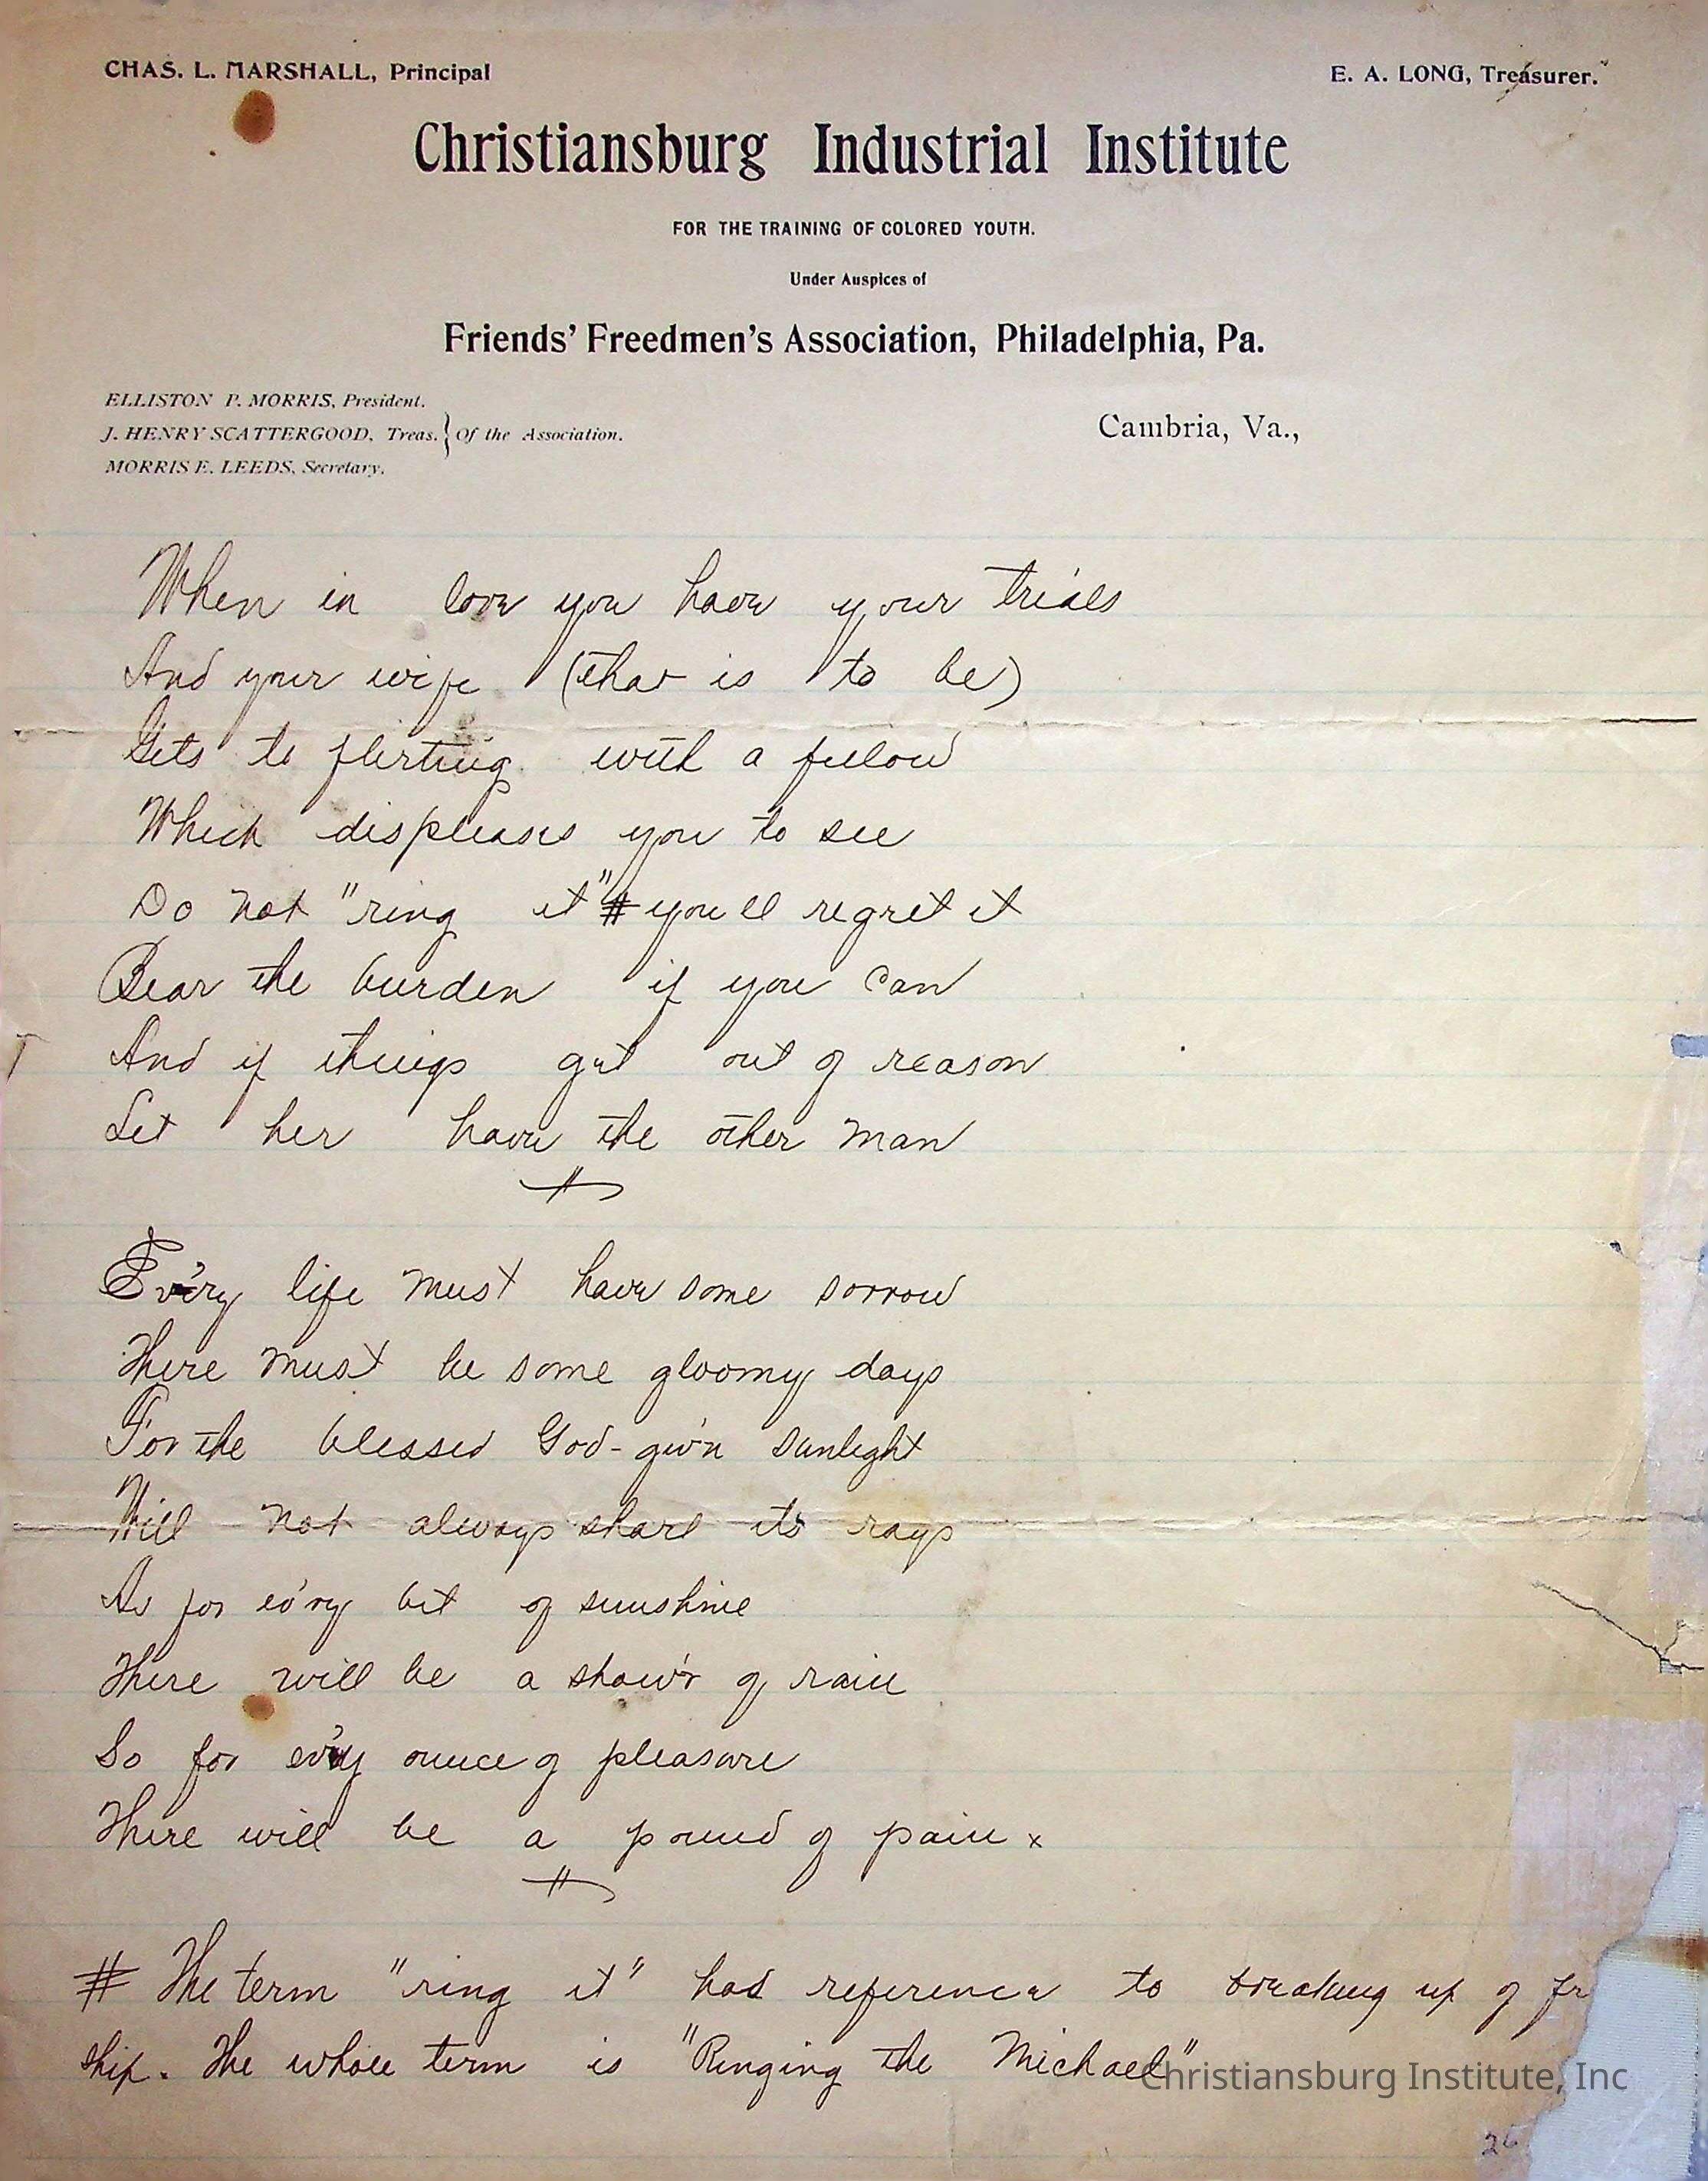 CHAS. L. MARSHALL, Principal
E. A. LONG, Treasurer.
Christiansburg Industrial Institute
FOR THE TRAINING OF COLORED YOUTH.
Under Auspices of
Friends' Freedmen's Association, Philadelphia, Pa.
ELLISTON P. MORRIS, President.
J. HENRY SCATTERGOOD, Treas. } Of the Association.
MORRIS E. LEEDS, Secretary.
Cambria, Va.,
When in love you have your trials
And your wife (that is to be)
Gets to flirting with a fellow
Which displeases you to see
Do not "ring it" # you'll regret it
Bear the burden if you can
And if things get out of reason
Let her have the other man
Ev'ry life must have some sorrow
There must be some gloomy days
For the blessed God-giv'n sunlight
Will not always share its rays
As for ev'ry bit of sunshine
There will be a show'r of rain
So for ev'ry ounce of pleasure
There will be a pound of pain x
# The term "ring it" has reference to breaking up of fr
ship. The whole term is "Ringing the Michael"
Christiansburg Institute, Inc
26